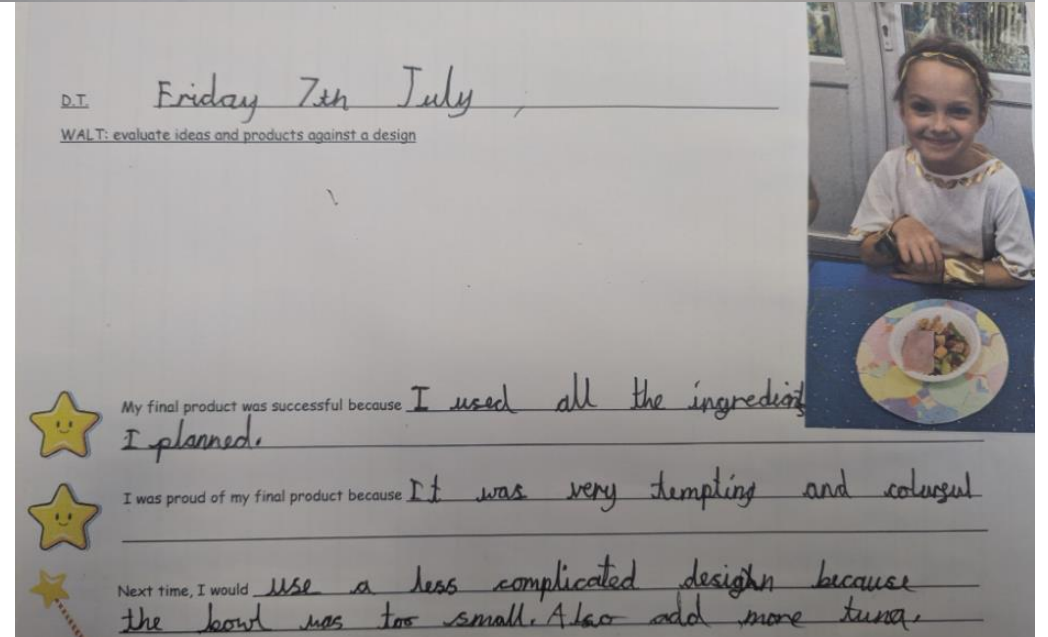 D.T. Friday 7th July
WALT: evaluate ideas and products against a design
My final product was successful because I used all the ingredients
I planned.
I was proud of my final product because It was very tempting and colurful
Next time, I would use a less complicated desighn because
the bowl was too small. Also add more tuna.